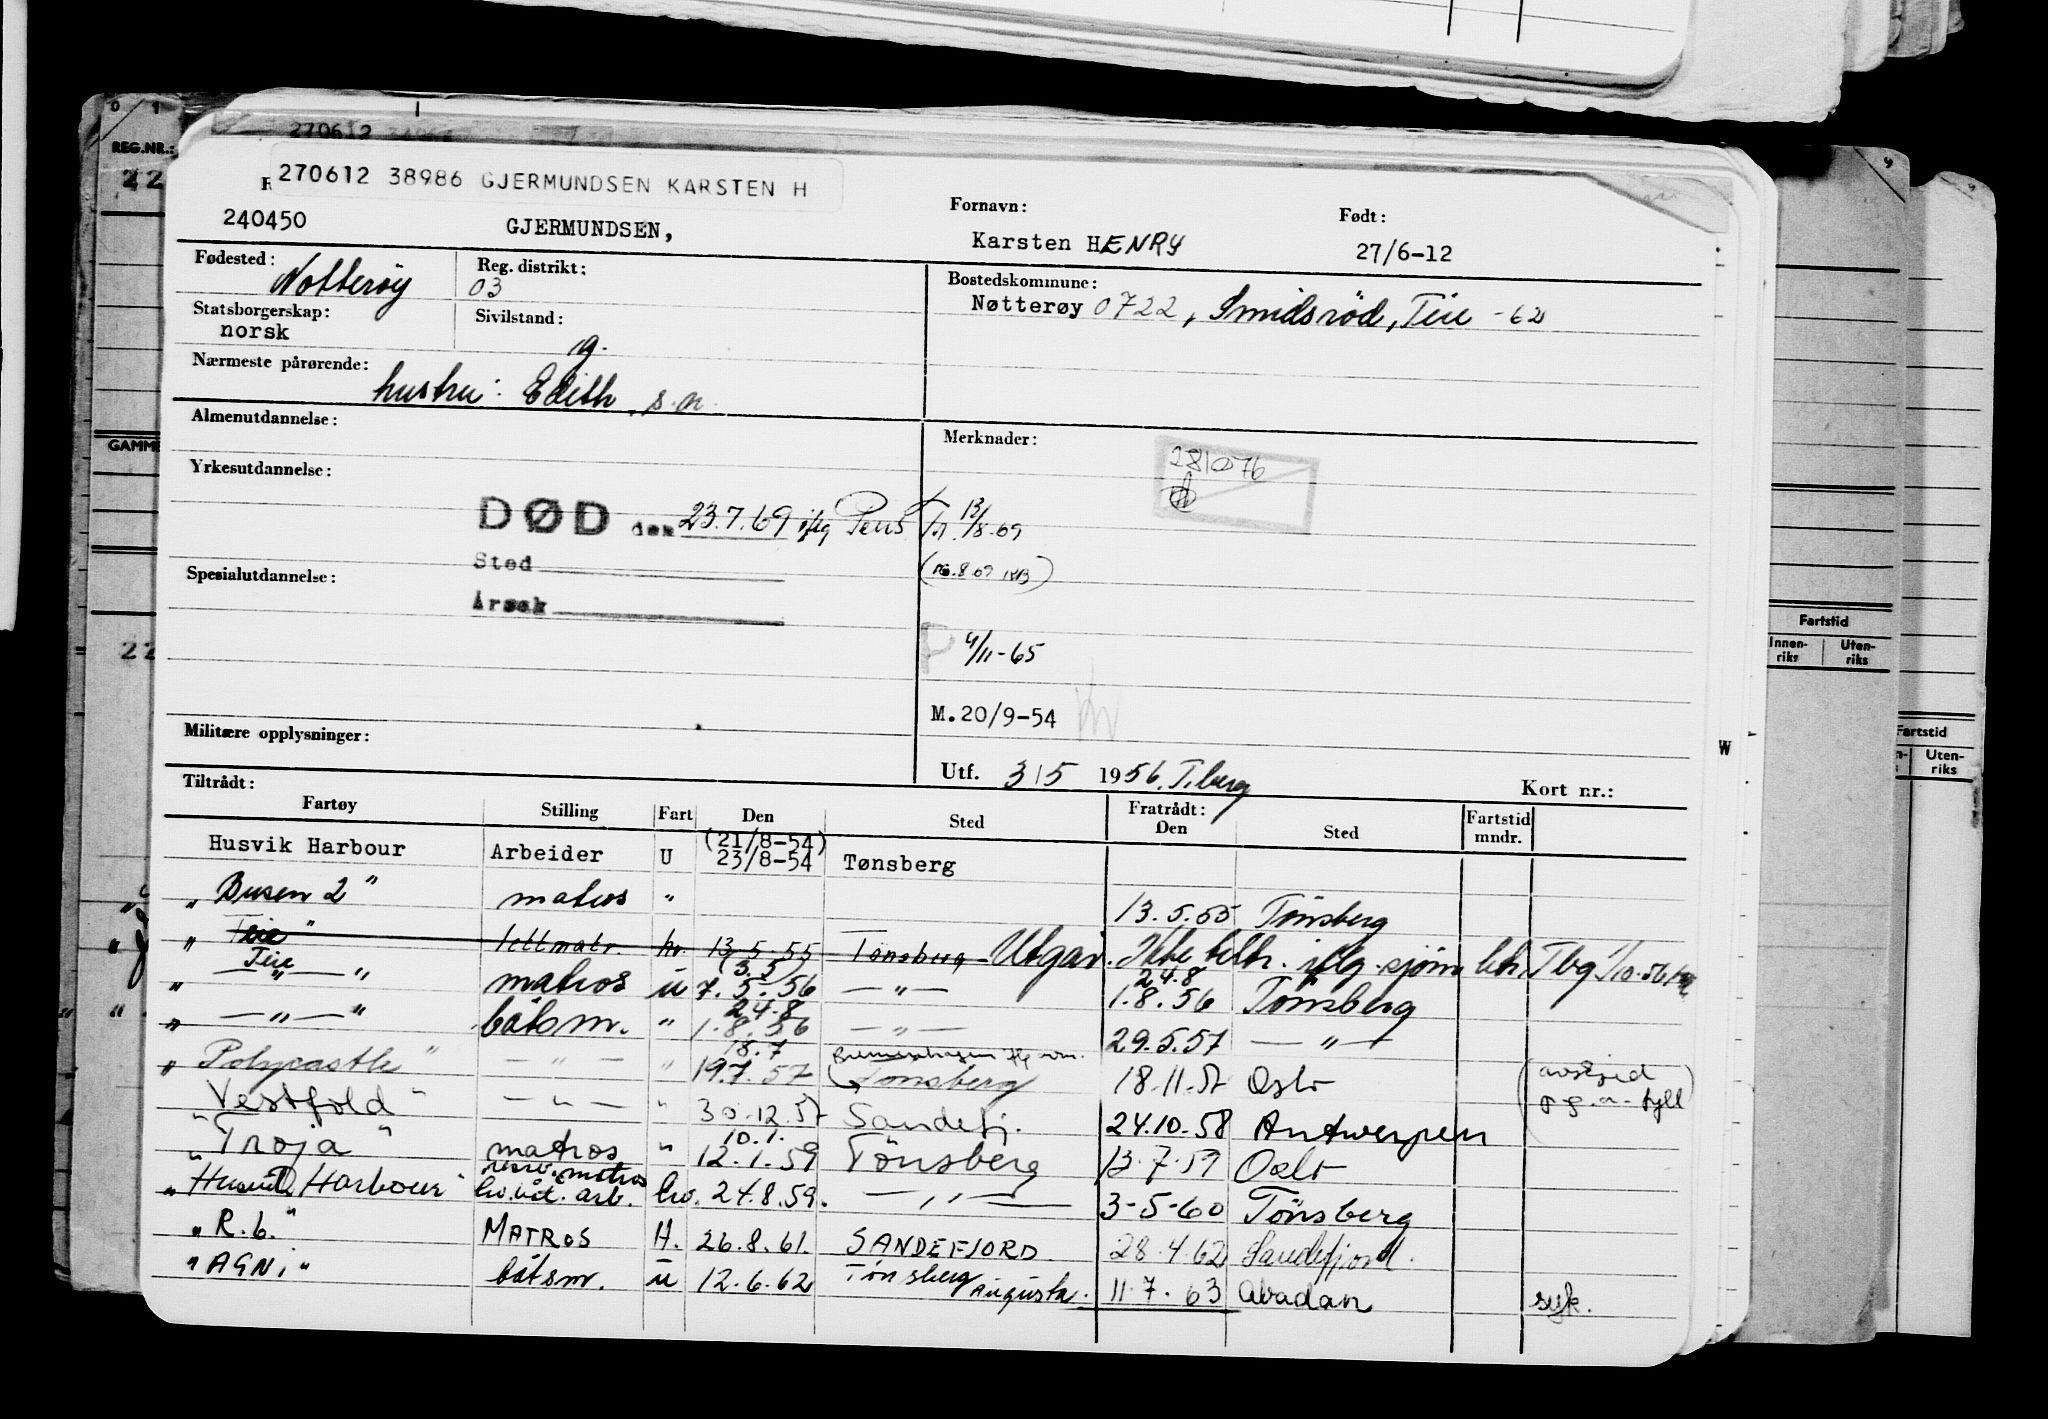 270612
REG.NR.:
22
270612 38986 GJERMUNDSEN KARSTEN H
240450 GJERMUNDSEN,
Fornavn: Født:
Karsten HENRY 27/6-12
Fødested: Nøtterøy Reg. distrikt: 03
Bostedskommune:
Nøtterøy 0722, Smidsrød, Teie -62
Statsborgerskap: norsk Sivilstand: g.
Nærmeste pårørende: hustru: Edith s.n.
Almenutdannelse:
Merknader:
281076
Yrkesutdannelse:
DØD den 23.7.69 iflg Pens Tr. 13/8-69
Sted
Årsak
Spesialutdannelse:
P 4/11-65
M.20/9-54
Militære opplysninger:
Utf. 3/5 1956, T.berg Kort nr.:
Tiltrådt: Fratrådt:
Fartøy Stilling Fart Den Sted Den Sted Fartstid mndr.
Husvik Harbour Arbeider U (21/8-54) 23/8-54 Tønsberg
" Busen 2" matros " 13.5.55 Tönsberg
" Teie" lettmatr. hv. 13/5-55 Tønsberg - Utgår. Ikke tiltr. iflg. sjøm. Tbg 1/10-56
" Teie " matros u (3.5) 7.5.56 — " — 24.8 1.8.56 Tönsberg
" — " — " båtsm. " 24.8 1.8.56 — " — 29.5.57 — " —
" Polycastle" — " — " 18.7 19.7.57 Tønsberg 18.11.57 Oslo
" Vestfold" — " — " 30.12.57 Sandefj. 24.10.58 Antwerpen
" Troja" matros " 10.1. 12.1.59 Tönsberg 13.7.59 Oslo
" Husvik Harbour" matros arb. hv. 24.8.59. — " — 3-5-60 Tönsberg
" R.6." MATROS H. 26.8.61. SANDEFJORD 28.4.62 Sandefjord.
" AGNI" båtsm. u 12.6.62 Tönsberg Augusta. 11.7.63 Abadan syk.
GAMME
22
W
Fartstid
Innen-riks Uten-riks
Fartstid
Uten-riks